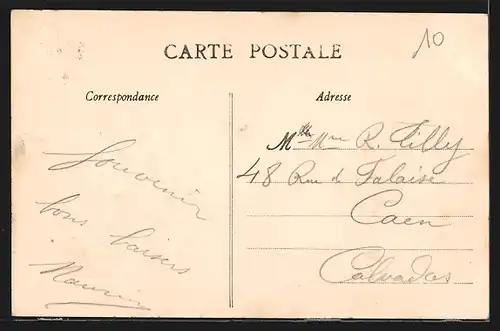 10
CARTE POSTALE
Correspondance
Adresse
Souvenir
bons baisers
Maurice
Mme R. Tilly
48 Rue de Falaise
Caen
Calvados